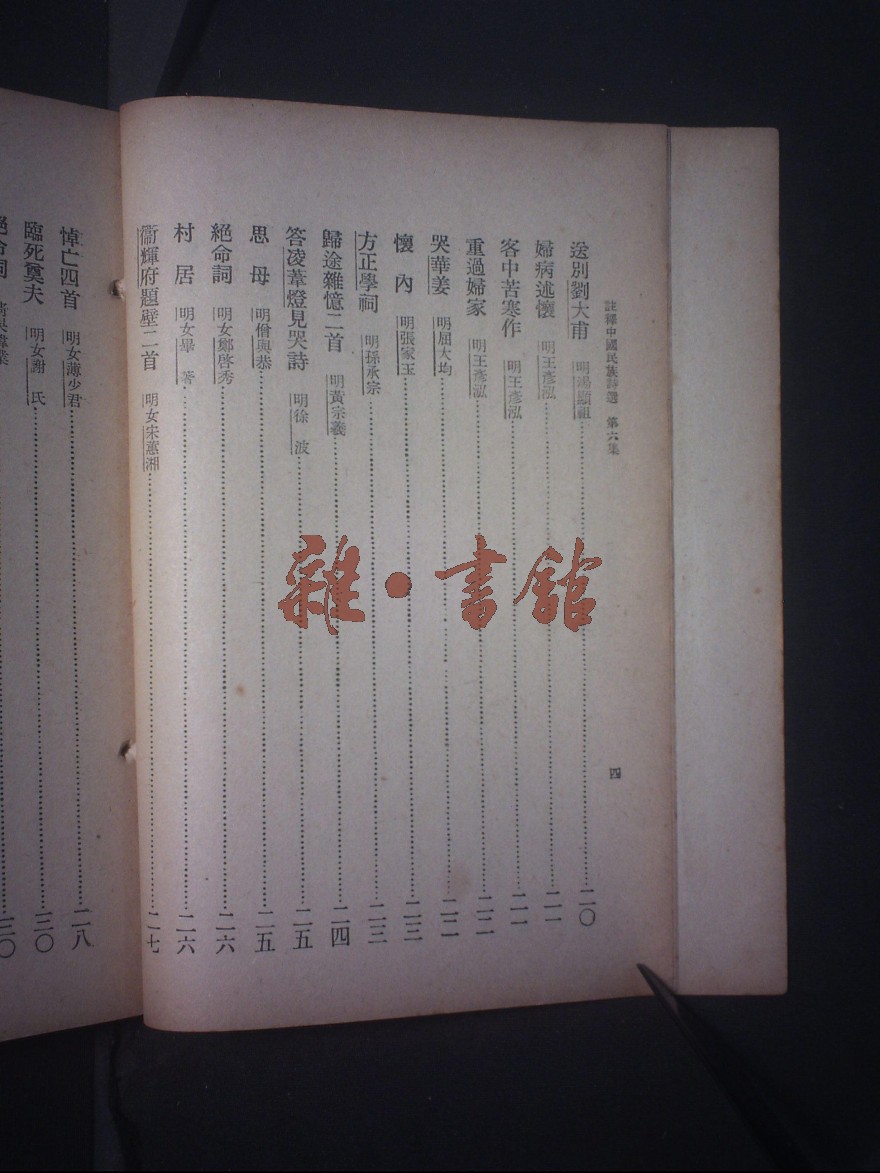 註釋中國民族詩選 第六集
四
送別劉大甫 明湯顯祖 二〇
婦病述懷 明王彥泓 二一
客中苦寒作 明王彥泓 二一
重過婦家 明王彥泓 二二
哭華姜 明屈大均 二二
懷內 明張家玉 二三
方正學祠 明孫承宗 二三
歸途雜憶二首 明黃宗羲 二四
答凌葦燈見哭詩 明徐波 二五
思母 明僧與恭 二五
絕命詞 明女鄭啓秀 二六
村居 明女畢著 二六
衞輝府題壁二首 明女宋蕙湘 二七
悼亡四首 明女薄少君 二八
臨死奠夫 明女謝氏 三〇
絕命詞 三〇
雜·書館